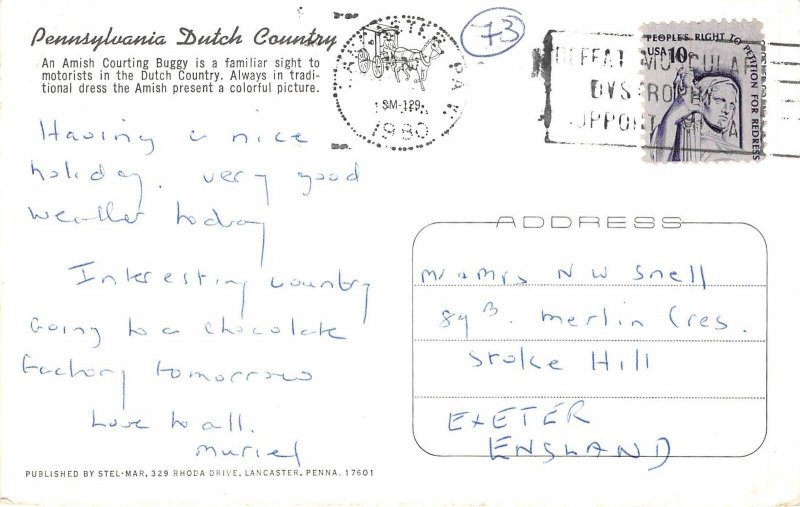 Pennsylvania Dutch Country
An Amish Courting Buggy is a familiar sight to
motorists in the Dutch Country. Always in tradi-
tional dress the Amish present a colorful picture.
Having a nice
holiday. very good
weather today
Interesting country
Going to a chocolate
factory tomorrow
Love to all.
Muriel
PUBLISHED BY STEL-MAR, 329 RHODA DRIVE, LANCASTER, PENNA. 17601
73
PA.
1980
DEFEAT MUSCULAR
DYSTROPHY
SUPPORT
PEOPLE'S RIGHT TO PETITION FOR REDRESS
USA 10c
ADDRESS
Mr & Mrs N W Snell
89B. Merlin Cres.
Stoke Hill
EXETER
ENGLAND